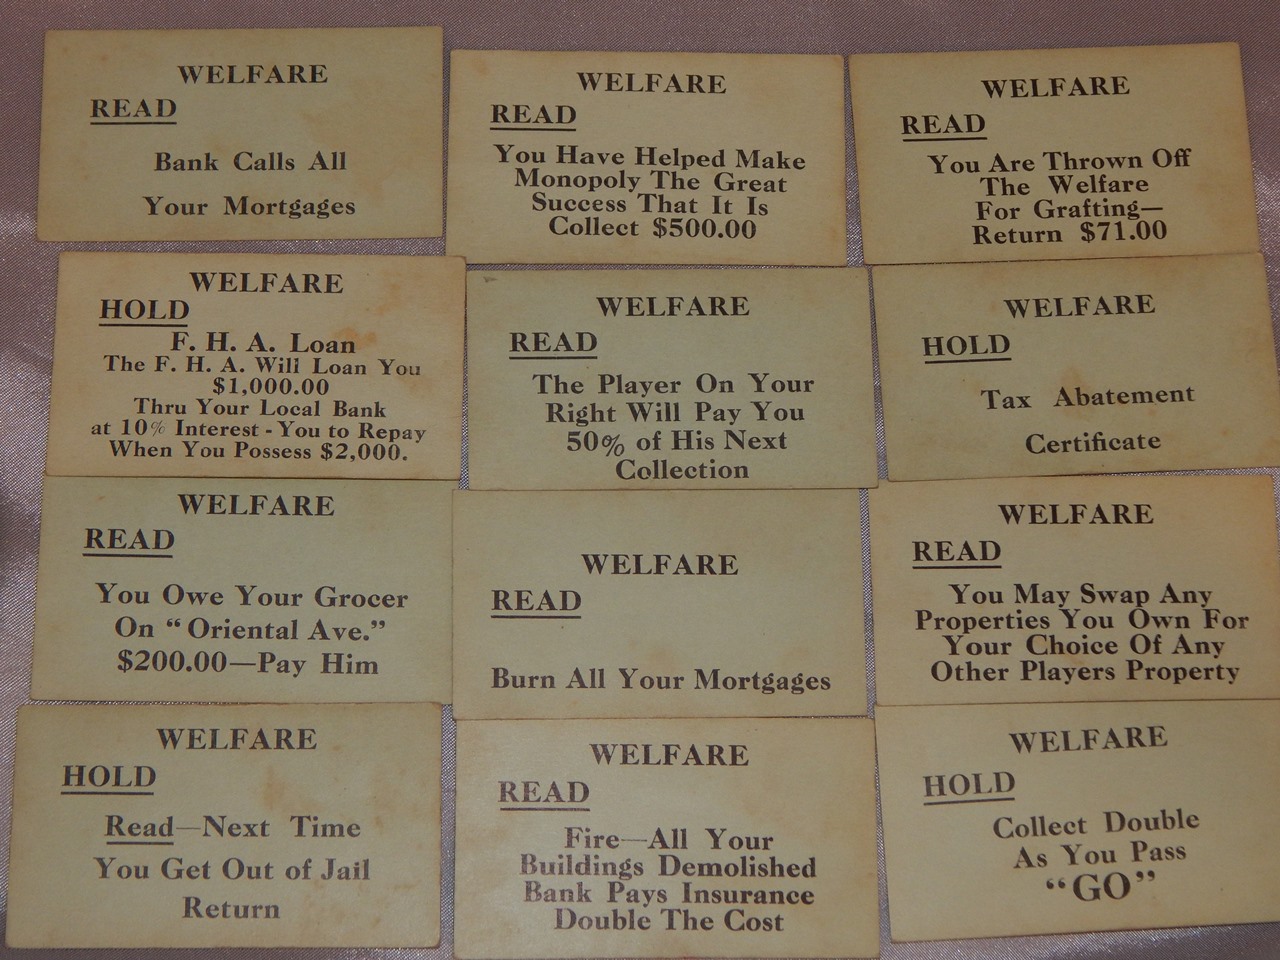 WELFARE
READ
Bank Calls All
Your Mortgages
WELFARE
READ
You Have Helped Make
Monopoly The Great
Success That It Is
Collect $500.00
WELFARE
READ
You Are Thrown Off
The Welfare
For Grafting—
Return $71.00
WELFARE
HOLD
F. H. A. Loan
The F. H. A. Will Loan You
$1,000.00
Thru Your Local Bank
at 10% Interest - You to Repay
When You Possess $2,000.
WELFARE
READ
The Player On Your
Right Will Pay You
50% of His Next
Collection
WELFARE
HOLD
Tax Abatement
Certificate
WELFARE
READ
You Owe Your Grocer
On “Oriental Ave.”
$200.00—Pay Him
WELFARE
READ
Burn All Your Mortgages
WELFARE
READ
You May Swap Any
Properties You Own For
Your Choice Of Any
Other Players Property
WELFARE
HOLD
Read—Next Time
You Get Out of Jail
Return
WELFARE
READ
Fire—All Your
Buildings Demolished
Bank Pays Insurance
Double The Cost
WELFARE
HOLD
Collect Double
As You Pass
“GO”